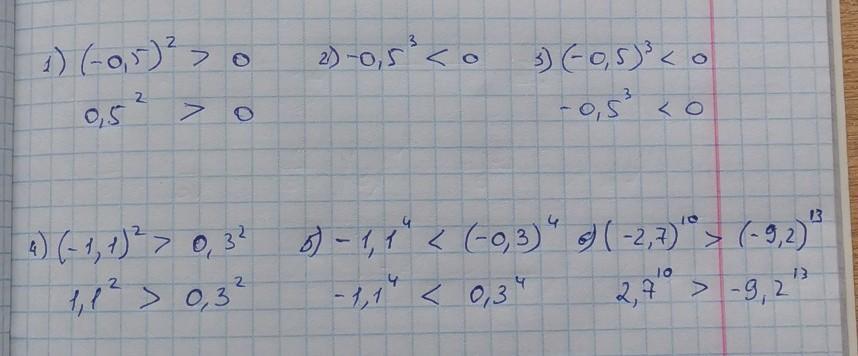 1) (-0,5)² > 0 2) -0,5³ < 0 3) (-0,5)³ < 0
0,5² > 0 -0,5³ < 0
4) (-1,1)² > 0,3² 5) -1,1⁴ < (-0,3)⁴ 6) (-2,7)¹⁰ > (-9,2)¹³
1,1² > 0,3² -1,1⁴ < 0,3⁴ 2,7¹⁰ > -9,2¹³